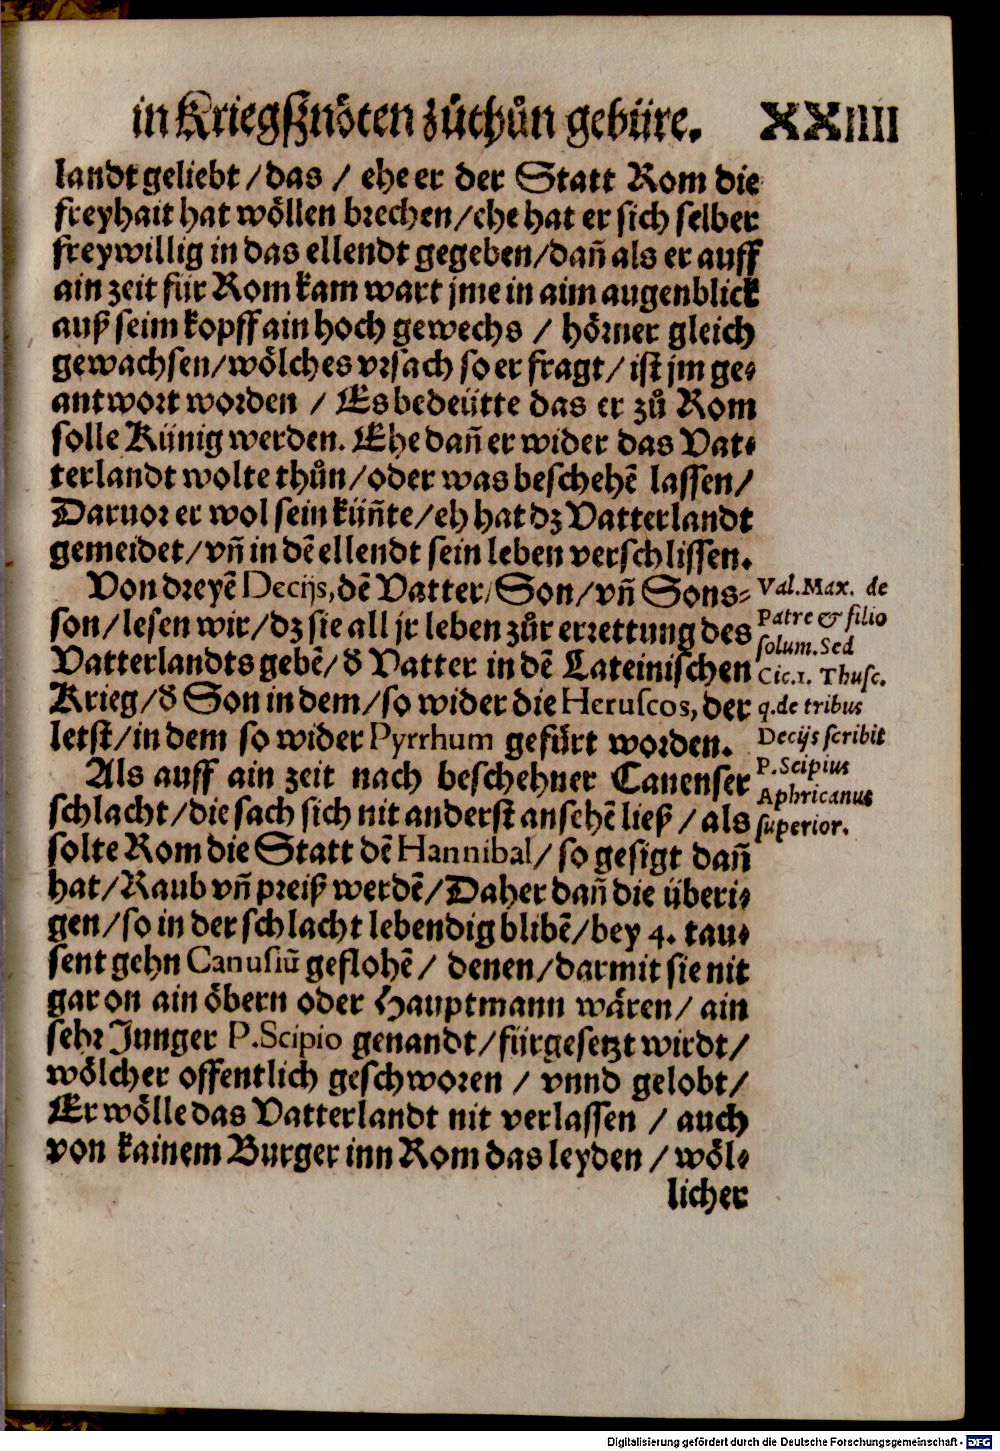 in Kriegßnöten zůthůn gebüre. XXIIII
landt geliebt / das / ehe er der Statt Rom die
freyhait hat wöllen brechen / ehe hat er sich selber
freywillig in das ellendt gegeben / dañ als er auff
ain zeit für Rom kam wart jme in aim augenblick
auß seim kopff ain hoch gewechs / hörner gleich
gewachsen / wölches vrsach so er fragt / ist jm ge⸗
antwort worden / Es bedeütte das er zů Rom
solle Künig werden. Ehe dañ er wider das Vat⸗
terlandt wolte thůn / oder was beschehē lassen /
Daruor er wol sein küñte / eh hat dz Vatterlandt
gemeidet / vñ in dē ellendt sein leben verschlissen.
Von dreyē Decijs, dē Vatter / Son / vñ Sons⸗
son / lesen wir / dz sie all jr leben zůr errettung des
Vatterlandts gebē / d̕ Vatter in dē Lateinischen
Krieg / d̕ Son in dem / so wider die Heruscos, der
letst / in dem so wider Pyrrhum gefürt worden.
Val. Max. de
Patre & filio
solum. Sed
Cic. 1. Thusc.
q. de tribus
Decijs scribit
P. Scipius
Aphricanus
superior.
Als auff ain zeit nach beschehner Canenser
schlacht / die sach sich nit anderst ansehē ließ / als
solte Rom die Statt dē Hannibal / so gesigt dañ
hat / Raub vñ preiß werdē / Daher dañ die überi⸗
gen / so in der schlacht lebendig blibē / bey 4. tau⸗
sent gehn Canusiū geflohē / denen / darmit sie nit
gar on ain öbern oder Hauptmann wären / ain
sehr Junger P. Scipio genandt / fürgesetzt wirdt /
wölcher offentlich geschworen / vnnd gelobt /
Er wölle das Vatterlandt nit verlassen / auch
von kainem Burger inn Rom das leyden / wöl⸗
licher
Digitalisierung gefördert durch die Deutsche Forschungsgemeinschaft - DFG